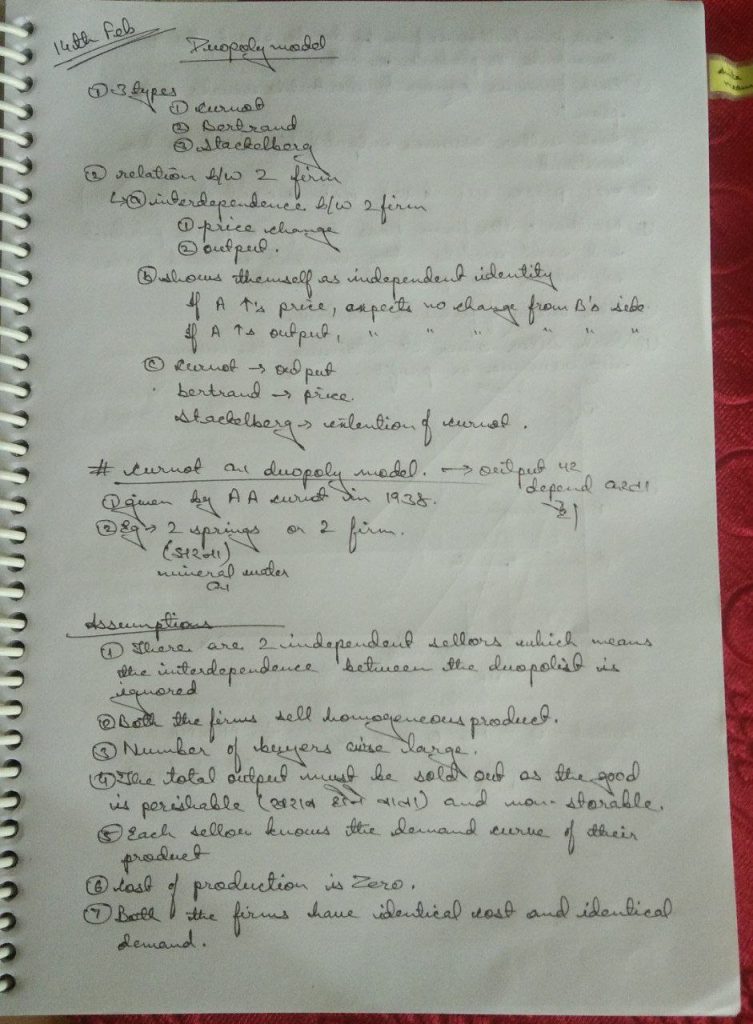 14th Feb
Duopoly model
① 3 types
① curnot
② Bertrand
③ Stackelberg
② relation b/w 2 firm
↳ ⓐ interdependence b/w 2 firm
① price change
② output.
ⓑ shows themself as independent identity
If A ↑'s price, expects no change from B's side
If A ↑s output, " " " " " "
ⓒ curnot → output
bertrand → price
Stackelberg → extention of curnot.
# curnot an duopoly model. → output पर
depend करता
है।
① given by AA curnot in 1938.
② Eg → 2 springs or 2 firm.
(झरना)
mineral water
का
Assumptions
① There are 2 independent sellors which means
the interdependence between the duopolist is
ignored
② Both the firms sell homogeneous product.
③ Number of buyers are large.
④ The total output must be sold out as the good
is perishable (खराब होने वाला) and non-storable.
⑤ Each sellor knows the demand curve of their
product
⑥ Cost of production is Zero.
⑦ Both the firms have identical cost and identical
demand.